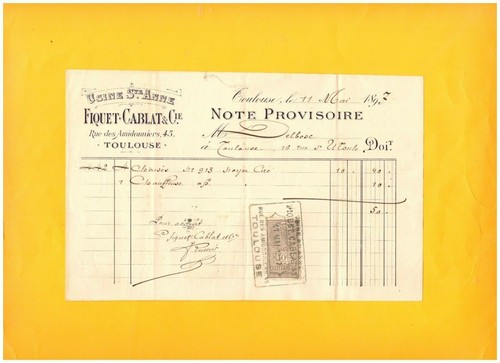 USINE STE ANNE
FIQUET-CABLAT & CIE
Rue des Amidonniers, 45.
TOULOUSE
Toulouse, le 11 Mai 189
NOTE PROVISOIRE
M Delbosc
à Toulouse 10 rue St Doit
2 Chaises No 913 noyer Ciré 20 40
1 Chauffeuse 10
50
Pour acquit
Fiquet Cablat & Cie
FIQUET CABLAT
TOULOUSE